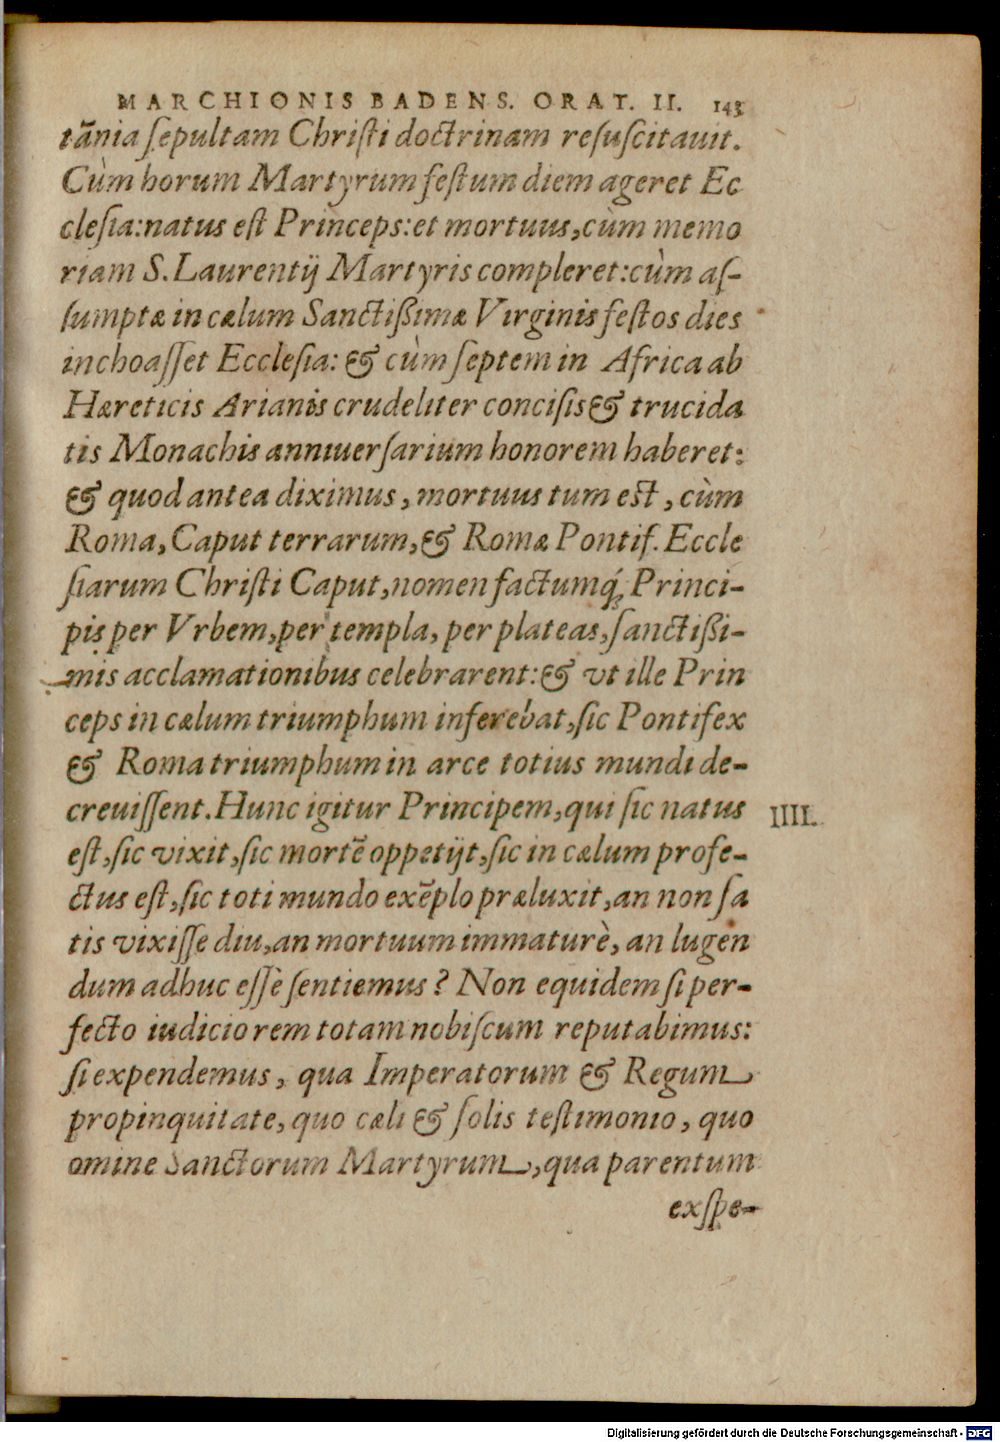 MARCHIONIS BADENS. ORAT. II. 143
tãnia ſepultam Chriſti doctrinam reſuſcitauit.
Cùm horum Martyrum feſtum diem ageret Ec
cleſia: natus eſt Princeps: et mortuus, cùm memo
riam S. Laurentij Martyris compleret: cùm aſ-
ſumptæ in cælum Sanctißimæ Virginis feſtos dies
inchoaſſet Eccleſia: & cùm ſeptem in Africa ab
Hæreticis Arianis crudeliter conciſis & trucida
tis Monachis anniuerſarium honorem haberet:
& quod antea diximus, mortuus tum eſt, cùm
Roma, Caput terrarum, & Romæ Pontif. Eccle
ſiarum Chriſti Caput, nomen factumq́; Princi-
pis per Vrbem, per templa, per plateas, ſanctißi-
mis acclamationibus celebrarent: & vt ille Prin
ceps in cælum triumphum inferebat, ſic Pontifex
& Roma triumphum in arce totius mundi de-
creuiſſent. Hunc igitur Principem, qui ſic natus
IIII.
eſt, ſic vixit, ſic mortẽ oppetijt, ſic in cælum profe-
ctus eſt, ſic toti mundo exẽplo præluxit, an non ſa
tis vixiſſe diu, an mortuum immaturè, an lugen
dum adhuc eſſe ſentiemus? Non equidem ſi per-
fecto iudicio rem totam nobiſcum reputabimus:
ſi expendemus, qua Imperatorum & Regum
propinquitate, quo cæli & ſolis teſtimonio, quo
omine Sanctorum Martyrum, qua parentum
exſpe-
Digitalisierung gefördert durch die Deutsche Forschungsgemeinschaft - DFG